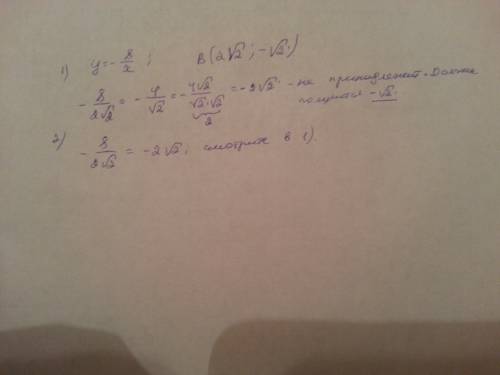 1) y = - 8/x ; B(2√2 ; -√2)
- 8/2√2 = - 4/√2 = - 4√2/√2·√2 = -2√2 - не принадлежит. Должно
2
получится -√2.
2) - 8/2√2 = -2√2; смотрите в 1).